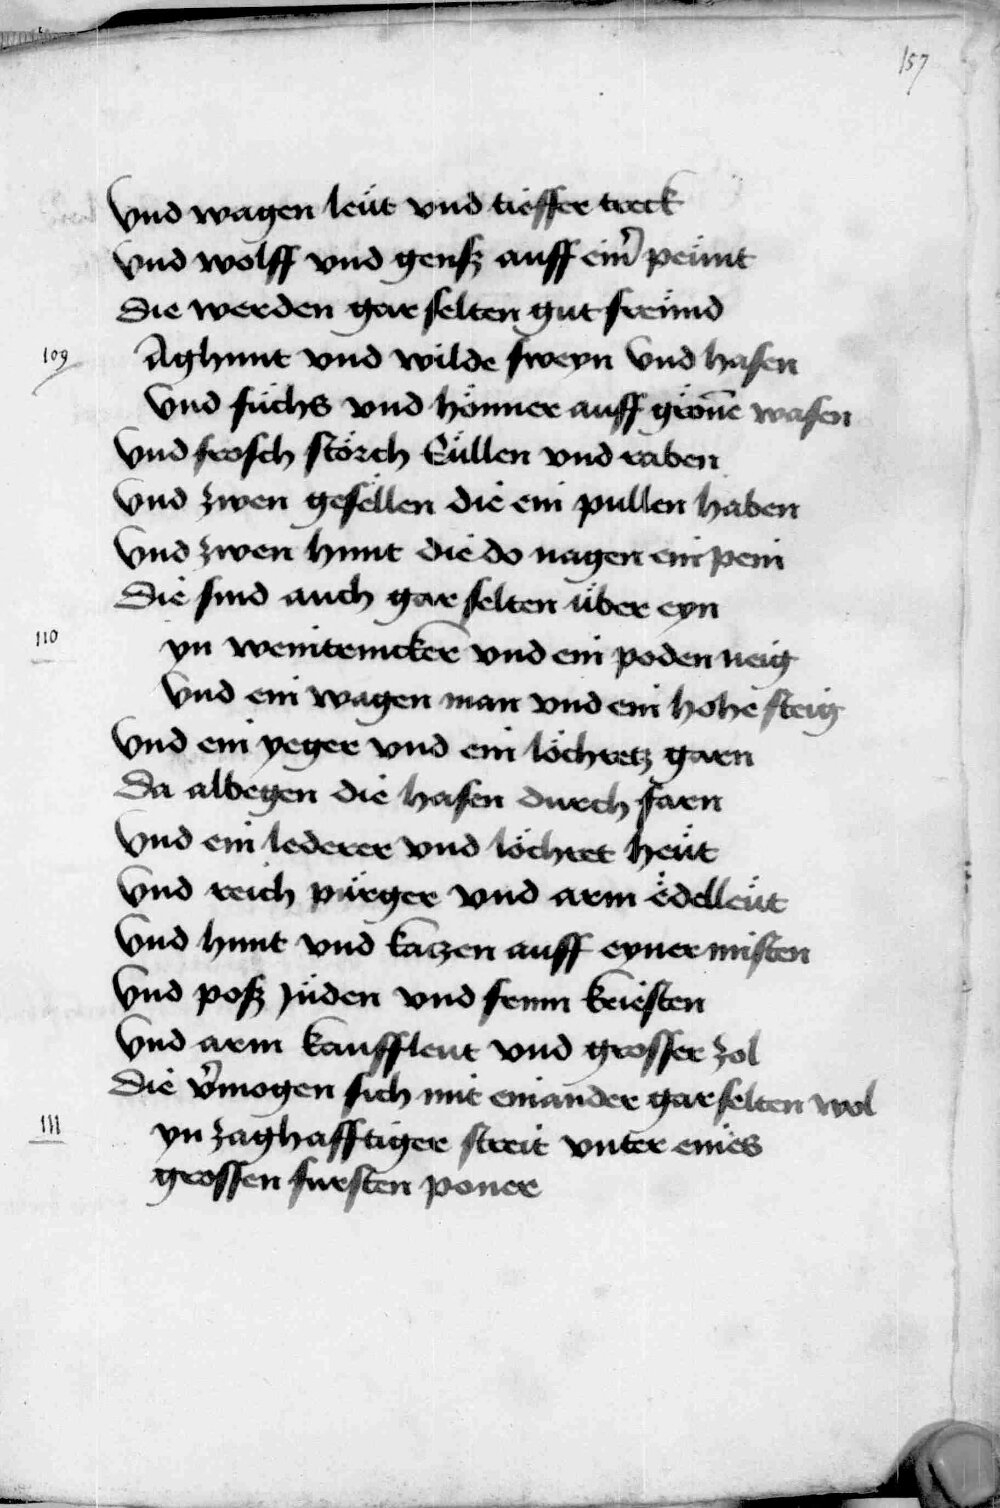 157
Vnd wagen leüt vnd tieffer treck
Vnd wolff vnd gensz auff eim̄ peünt
Die werden gar selten gut freünd
109
Aghunt vnd wilde sweyn Vnd hasen
Vnd füchs vnd hönner auff gröne wasen
Vnd frosch störch Eüllen vnd raben
Vnd zwen gesellen die ein pullen haben
Vnd zwen hunt die do nagen ein pein
Die sind auch gar selten über eyn
110
yn weintrincker vnd ein poden neig
Vnd ein wagen man vnd ein hohe steig
Vnd ein yeger vnd ein löchretz garn
Da albegen die hasen durch farn
Vnd ein lederer vnd löchret heüt
Vnd reich pürger vnd arm edelleüt
Vnd hunt vnd katzen auff eyner misten
Vnd posz Jüden vnd frum kristen
Vnd arm kauffleut vnd grosser zol
Die v̄mogen sich mit einander gar selten wol
111
yn zaghafftiger streit vnter eines
grossen fursten poner